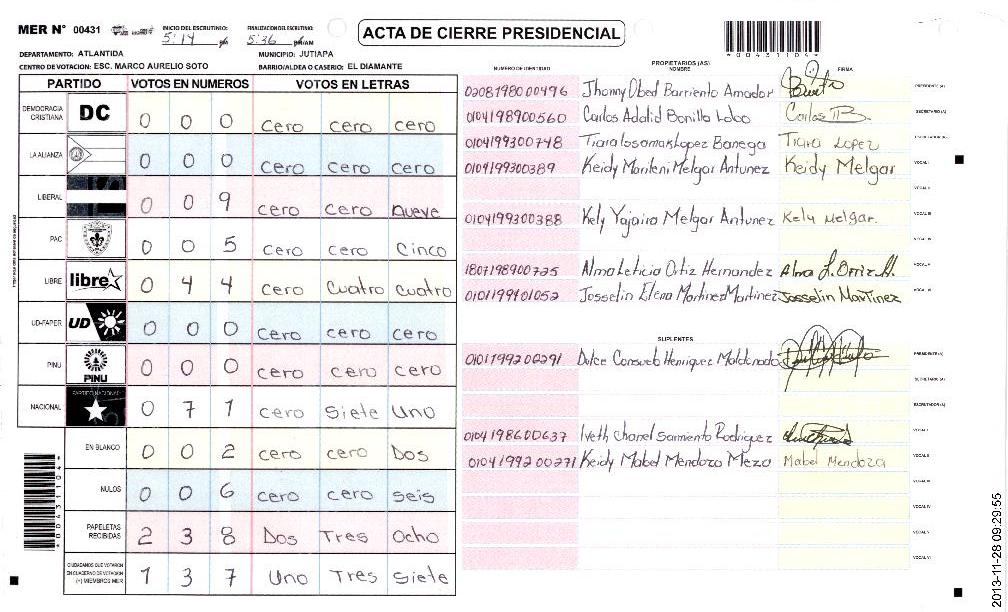 MER Nº 00431
INICIO DEL ESCRUTINIO: 5:14 PM
FINALIZACION DEL ESCRUTINIO: 5:36 PM/AM
ACTA DE CIERRE PRESIDENCIAL
*00431104*
DEPARTAMENTO: ATLANTIDA
MUNICIPIO: JUTIAPA
CENTRO DE VOTACION: ESC. MARCO AURELIO SOTO
BARRIO/ALDEA O CASERIO: EL DIAMANTE
PARTIDO VOTOS EN NUMEROS VOTOS EN LETRAS
DEMOCRACIA CRISTIANA DC 0 0 0 cero cero cero
LA ALIANZA 0 0 0 cero cero cero
LIBERAL 0 0 9 cero cero nueve
PAC 0 0 5 cero cero Cinco
LIBRE libre 0 4 4 cero cuatro cuatro
UD-FAPER UD 0 0 0 cero cero cero
PINU PINU 0 0 0 cero cero cero
NACIONAL PARTIDO NACIONAL 0 7 1 cero Siete Uno
EN BLANCO 0 0 2 cero cero Dos
NULOS 0 0 6 cero cero seis
PAPELETAS RECIBIDAS 2 3 8 Dos Tres Ocho
CIUDADANOS QUE VOTARON EN CUADERNO DE VOTACION (+) MIEMBROS MER 1 3 7 Uno Tres Siete
*00431104*
PROPIETARIOS (AS)
NUMERO DE IDENTIDAD NOMBRE FIRMA
0208198000496 Jhonny Obed Barriento Amador PRESIDENTE (A)
0104198900560 Carlos Adalid Bonilla Lobo Carlos B. SECRETARIO (A)
0104199300748 Tiara Iosamak Lopez Banega Tiara Lopez ESCRUTADOR (A)
0104199300389 Keidy Marileni Melgar Antunez Keidy Melgar VOCAL I
VOCAL II
0104199300388 Kely Yajaira Melgar Antunez Kely Melgar. VOCAL III
VOCAL IV
1807198900725 Alma Leticia Ortiz Hernandez Alma L. Ortiz H. VOCAL V
0101199101052 Josselin Elena Martinez Martinez Josselin Martinez VOCAL VI
SUPLENTES
0101199200291 Dulce Consuelo Henriquez Maldonado PRESIDENTE (A)
SECRETARIO (A)
ESCRUTADOR (A)
0104198600637 Iveth Chanel Sarmiento Rodriguez VOCAL I
0104199200271 Keidy Mabel Mendoza Meza Mabel Mendoza VOCAL II
VOCAL III
VOCAL IV
VOCAL V
VOCAL VI
2013-11-28 09:29:55